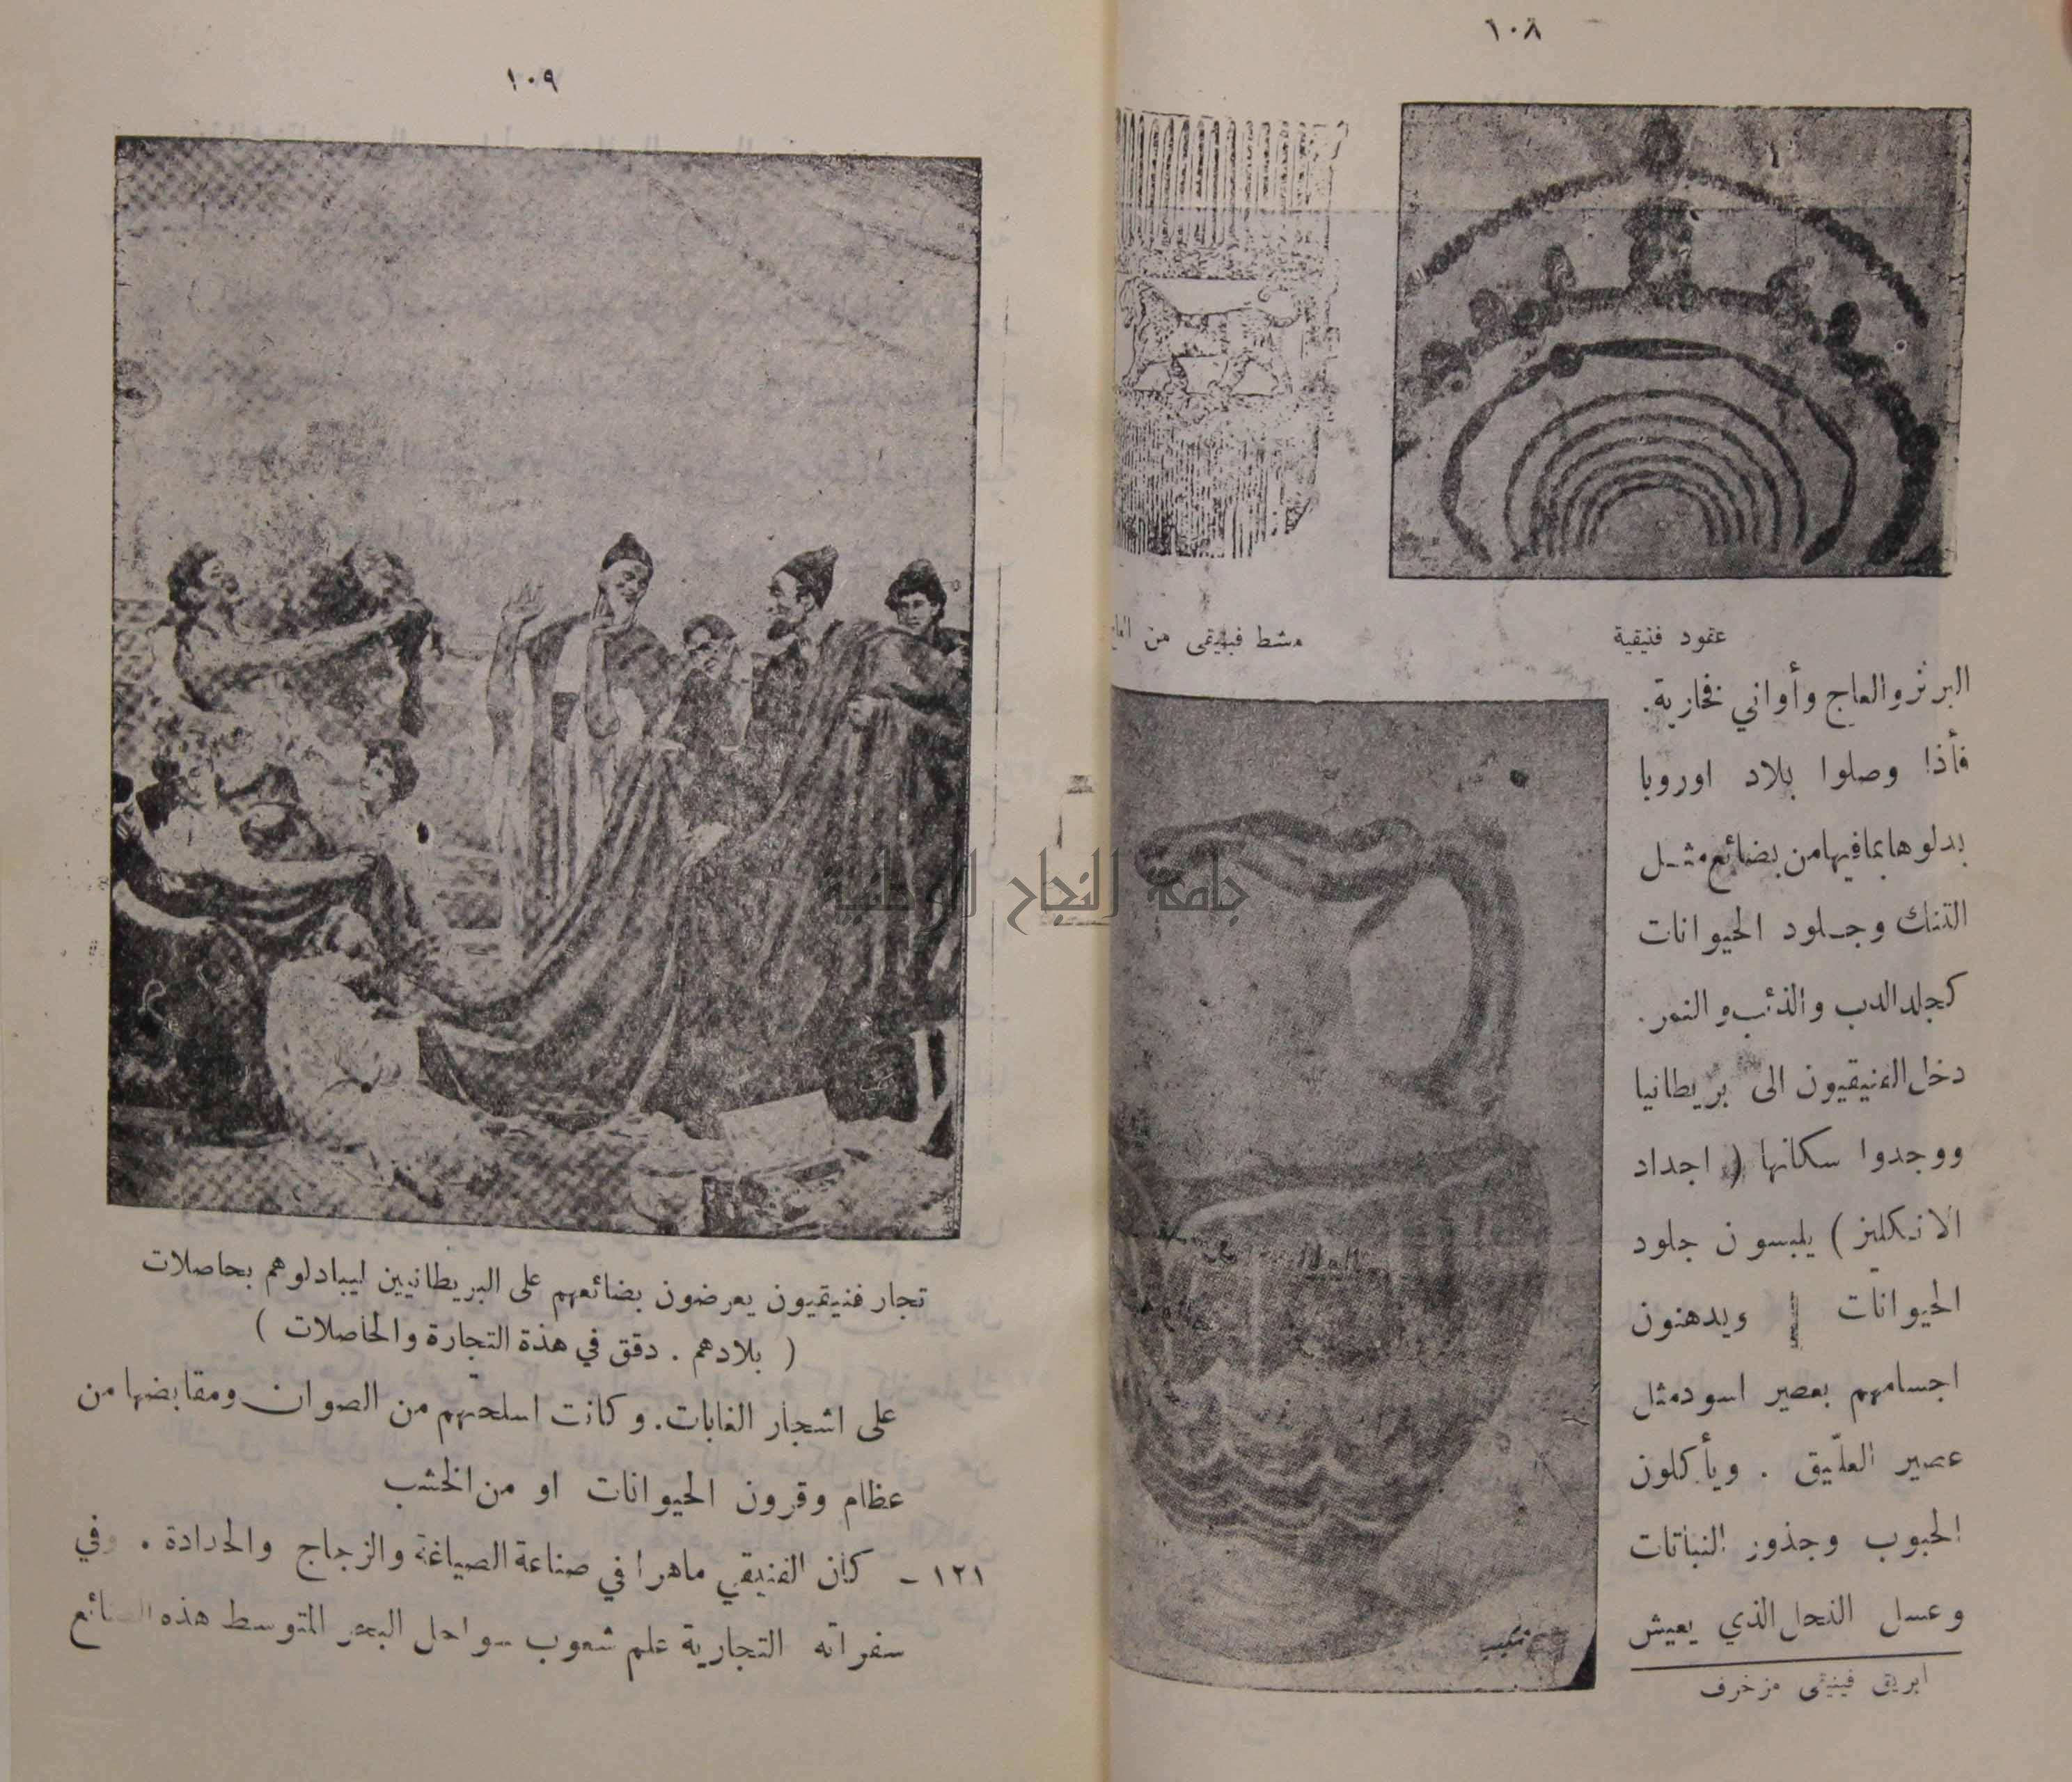 ١٠٨
عقود فنيقية
مشط فينيقي من العاج
البرنز والعاج وأواني فخارية.
فأذا وصلوا بلاد اوروبا
بدلوها بما فيها من بضائع مثل
التنك وجلود الحيوانات
كجلد الدب والذئب و النمر.
دخل الفنيقيون الى بريطانيا
ووجدوا سكانها ( اجداد
الانكليز ) يلبسون جلود
الحيوانات ويدهنون
اجسامهم بعصير اسود مثل
عصير العلّيق . ويأكلون
الحبوب وجذور النباتات
وعسل النحل الذي يعيش
ابريق فينيقي مزخرف
١٠٩
تجار فنيقيون يعرضون بضائعهم على البريطانيين ليبادلوهم بحاصلات
( بلادهم . دقق في هذة التجارة والحاصلات )
على اشجار الغابات. وكانت اسلحتهم من الصوان ومقابضها من
عظام وقرون الحيوانات او من الخشب
١٢١ - كان الفنيقي ماهرا في صناعة الصياغة والزجاج والحدادة . وفي
سفراته التجارية علم شعوب سواحل البحر المتوسط هذه الصنائع
جامعة النجاح الوطنية